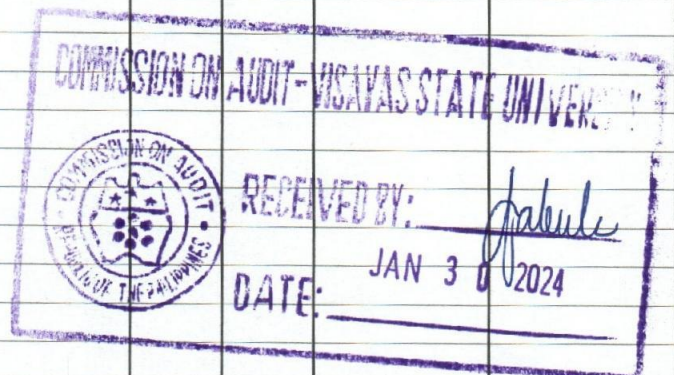 COMMISSION ON AUDIT-VISAYAS STATE
COMMISSION ON AUDIT
REPUBLIC OF THE PHILIPPINES
RECEIVED BY:
DATE: JAN 30 2024